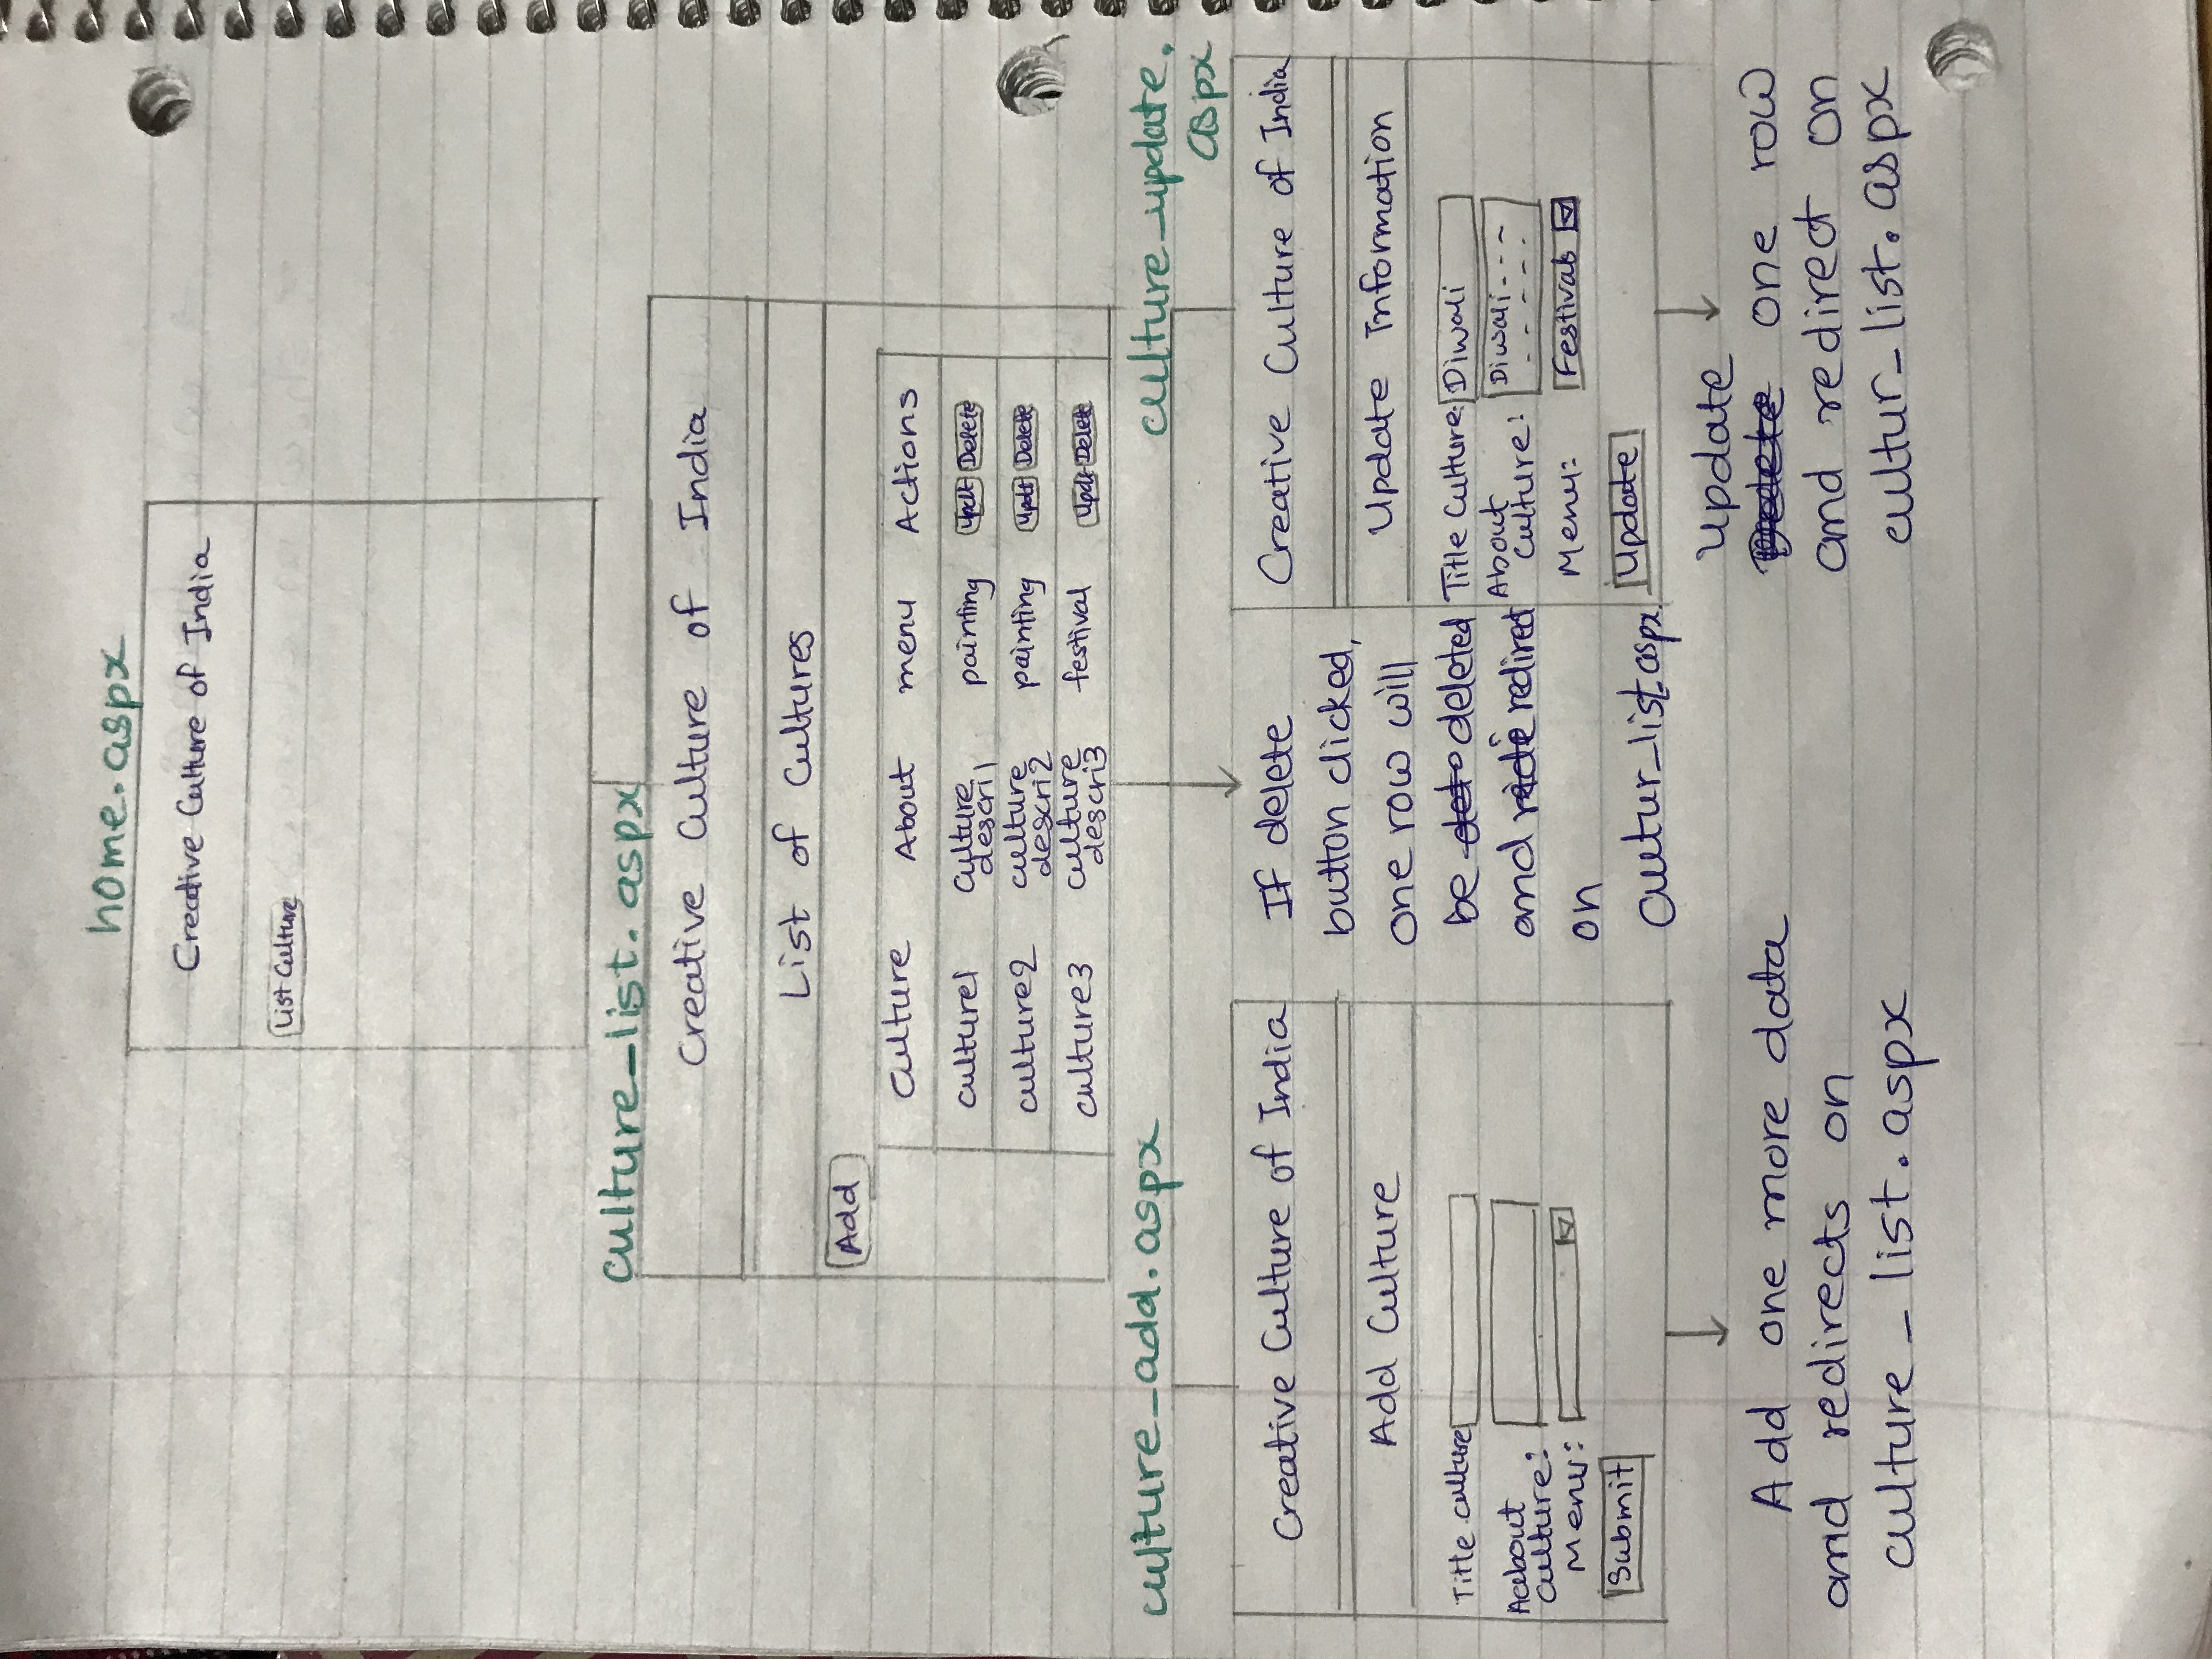 home.aspx
Creative Culture of India
List Culture
culture_list.aspx
Creative Culture of India
List of Cultures
Add
Culture About menu Actions
culture1 culture descri1 painting Updt Delete
culture2 culture descri2 painting Updt Delete
culture3 culture descri3 festival Updt Delete
culture_add.aspx
Creative Culture of India
Add Culture
Title culture
Aabout
culture:
Menu:
Submit
Add one more data
and redirects on
culture_list.aspx
If delete
button clicked,
one row will
be deleted
and redirect
on
cultur_list.aspx.
culture_update.
aspx
Creative Culture of India
Update Information
Title Culture: Diwali
About
culture: Diwali---
-----
Menu: Festivals
Update
Update
Delete one row
and redirect on
cultur_list.aspx